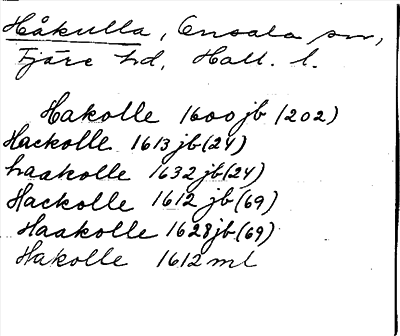 Håkulla, Onsala sn,
Fjäre hd, Hall. l.
Hakolle 1600 jb (202)
Hackolle 1613 jb (24)
haakolle 1632 jb (24)
Hackolle 1612 jb (69)
Haakolle 1628 jb (69)
Hakolle 1612 ml